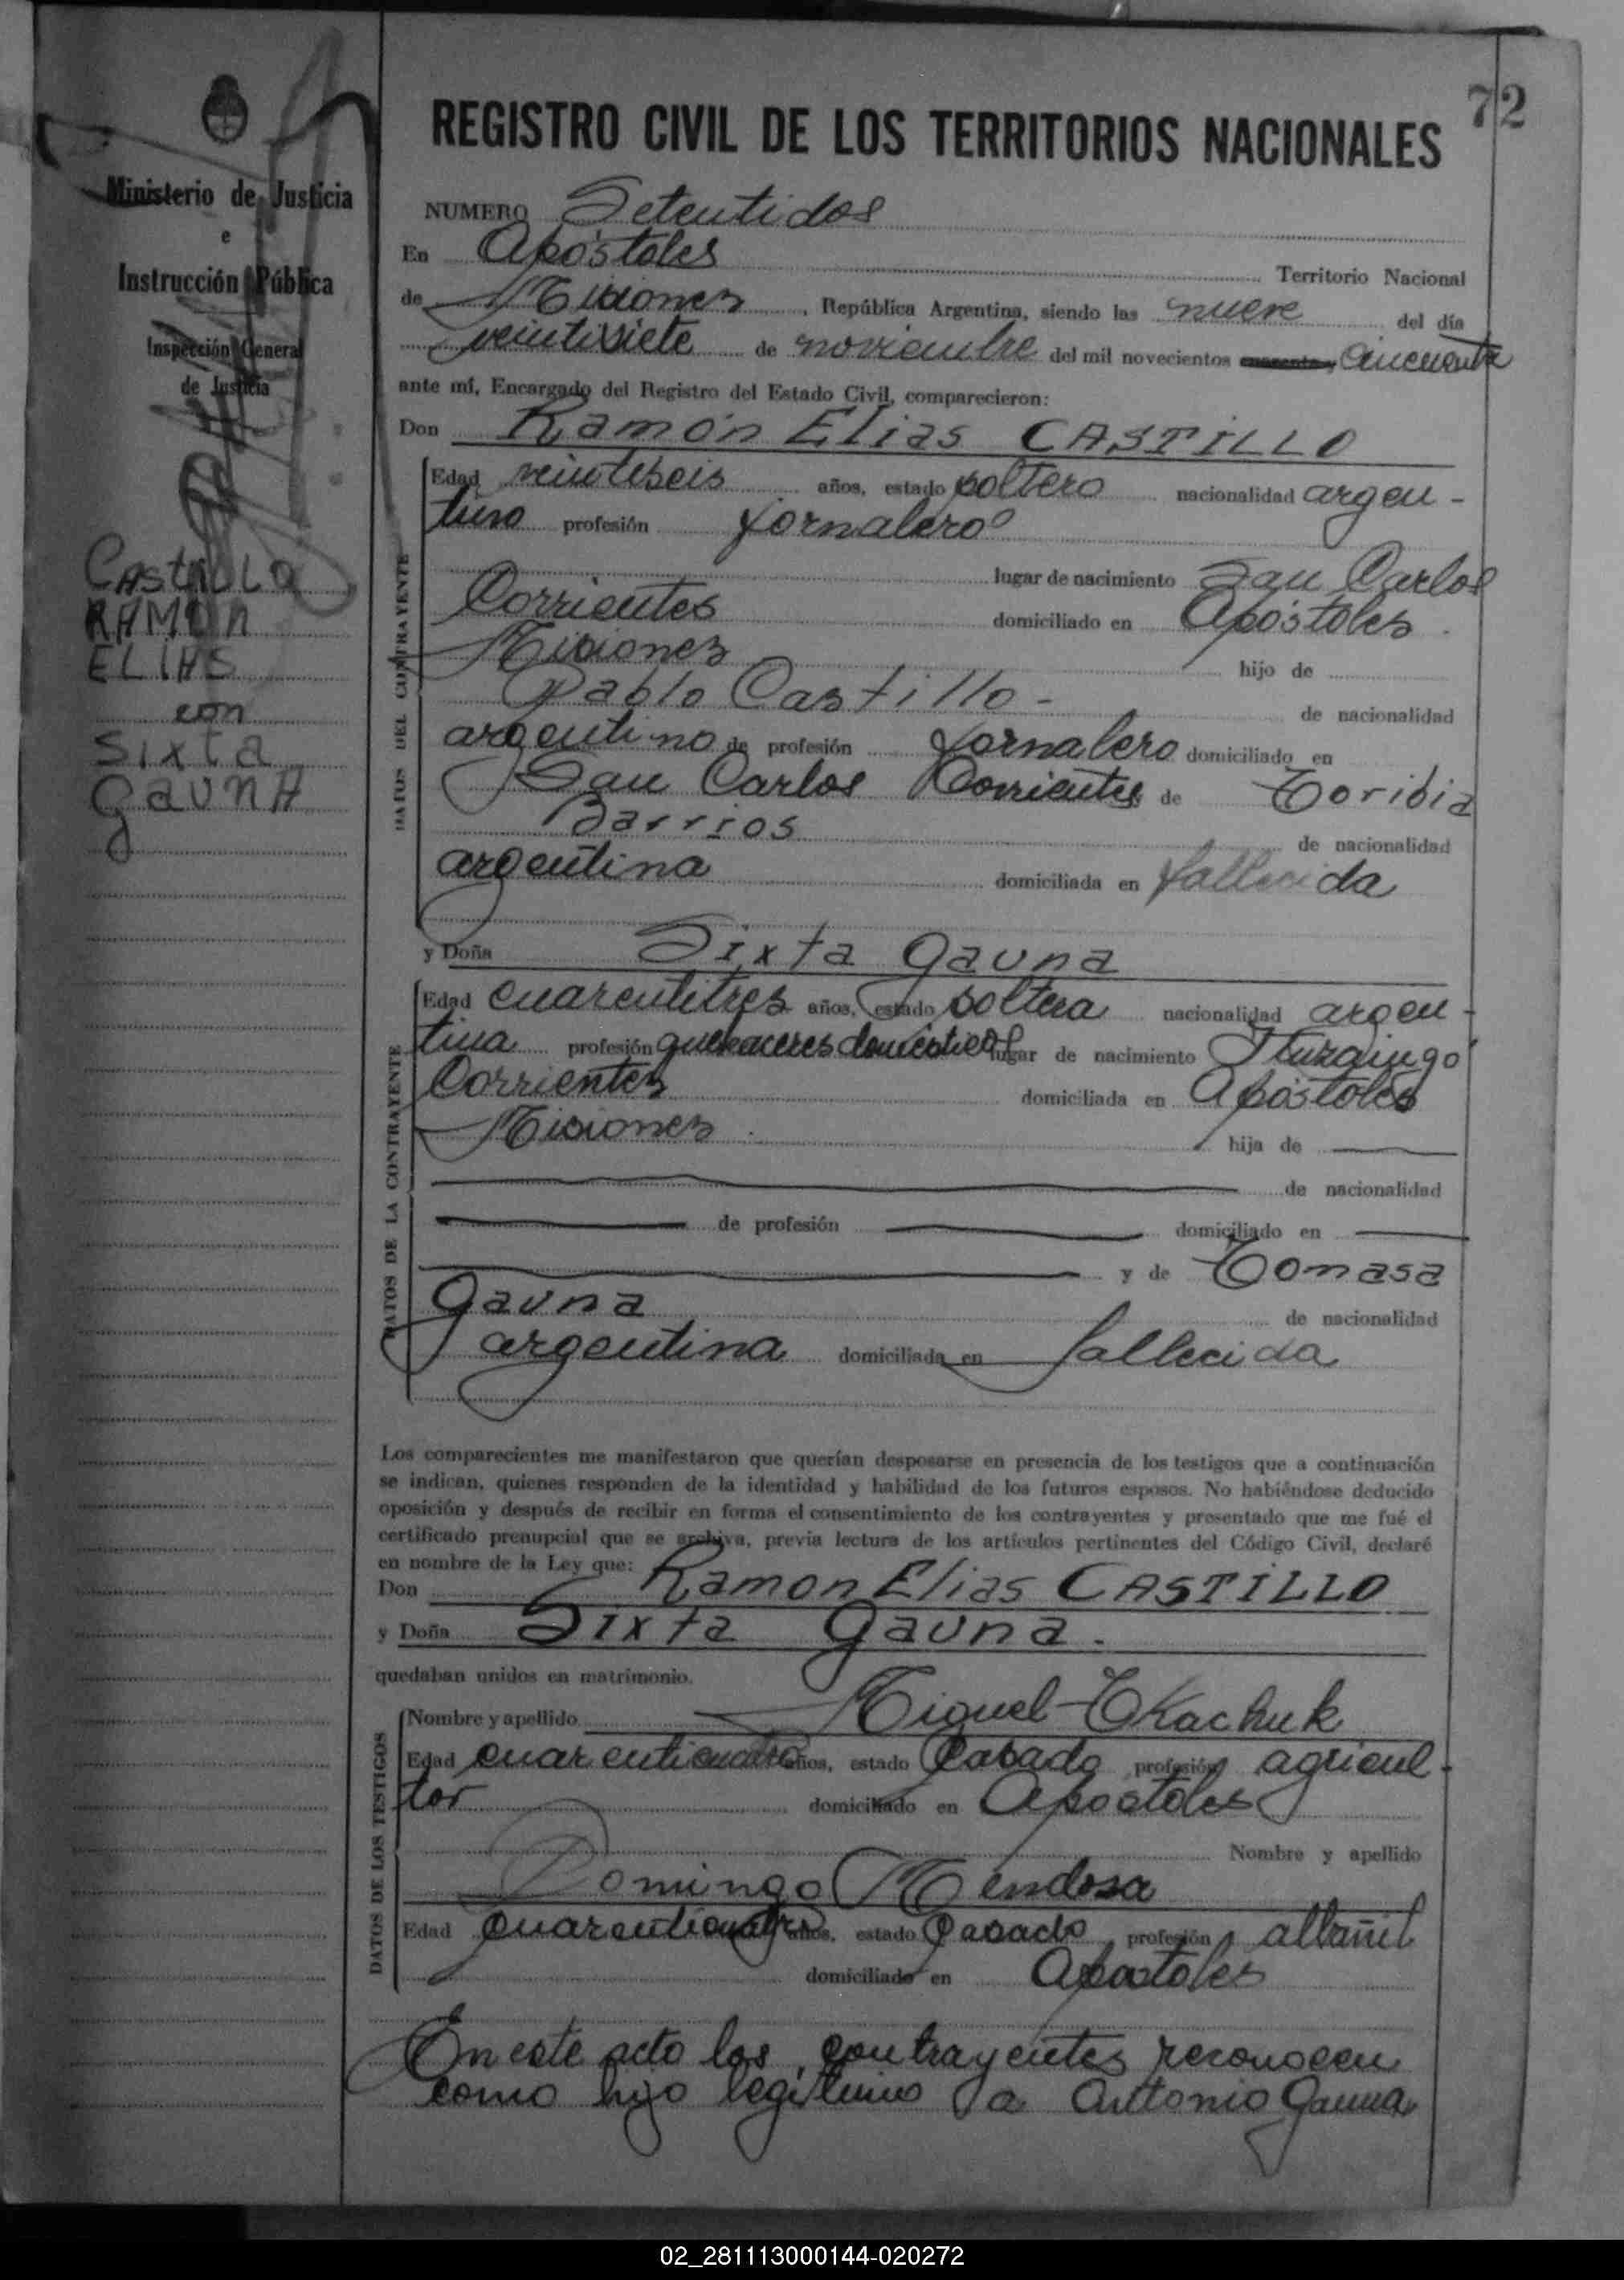 72
REGISTRO CIVIL DE LOS TERRITORIOS NACIONALES
Ministerio de Justicia
e
Instrucción Pública
Inspección General
de Justicia
CASTILLO
RAMON
ELIAS
con
Sixta
gaunA
NUMERO Setentidos
En Apóstoles Territorio Nacional
de Misiones, República Argentina, siendo las nueve del día
veintisiete de noviembre del mil novecientos cincuenta
ante mí, Encargado del Registro del Estado Civil, comparecieron:
Don Ramón Elias CASTILLO
DATOS DEL CONTRAYENTE
Edad veintiseis años, estado soltero nacionalidad argen-
tino profesión jornalero
lugar de nacimiento San Carlos
Corrientes domiciliado en Apóstoles
Misiones hijo de
Pablo Castillo - de nacionalidad
argentino de profesión jornalero domiciliado en
San Carlos Corrientes de Toribia
Barrios de nacionalidad
argentina domiciliada en fallecida
y Doña Sixta Gauna
DATOS DE LA CONTRAYENTE
Edad cuarentitres años, estado soltera nacionalidad argen-
tina profesión quehaceres domésticos lugar de nacimiento Ituzaingó
Corrientes domiciliada en Apóstoles
Misiones hija de
de nacionalidad
de profesión domiciliado en
y de Tomasa
Gauna de nacionalidad
argentina domiciliada en fallecida
Los comparecientes me manifestaron que querían desposarse en presencia de los testigos que a continuación
se indican, quienes responden de la identidad y habilidad de los futuros esposos. No habiéndose deducido
oposición y después de recibir en forma el consentimiento de los contrayentes y presentado que me fué el
certificado prenupcial que se archiva, previa lectura de los artículos pertinentes del Código Civil, declaré
en nombre de la Ley que:
Don Ramon Elias CASTILLO
y Doña Sixta Gauna.
quedaban unidos en matrimonio.
DATOS DE LOS TESTIGOS
Nombre y apellido Miguel Tkachuk
Edad cuarenticuatro años, estado Casado profesión agricul-
tor domiciliado en Apostoles
Nombre y apellido
Domingo Mendosa
Edad cuarenticuatro años, estado Casado profesión albañil
domiciliado en Apostoles
En este acto los contrayentes reconocen
como hijo legítimo a Antonio Gauna
02_281113000144-020272